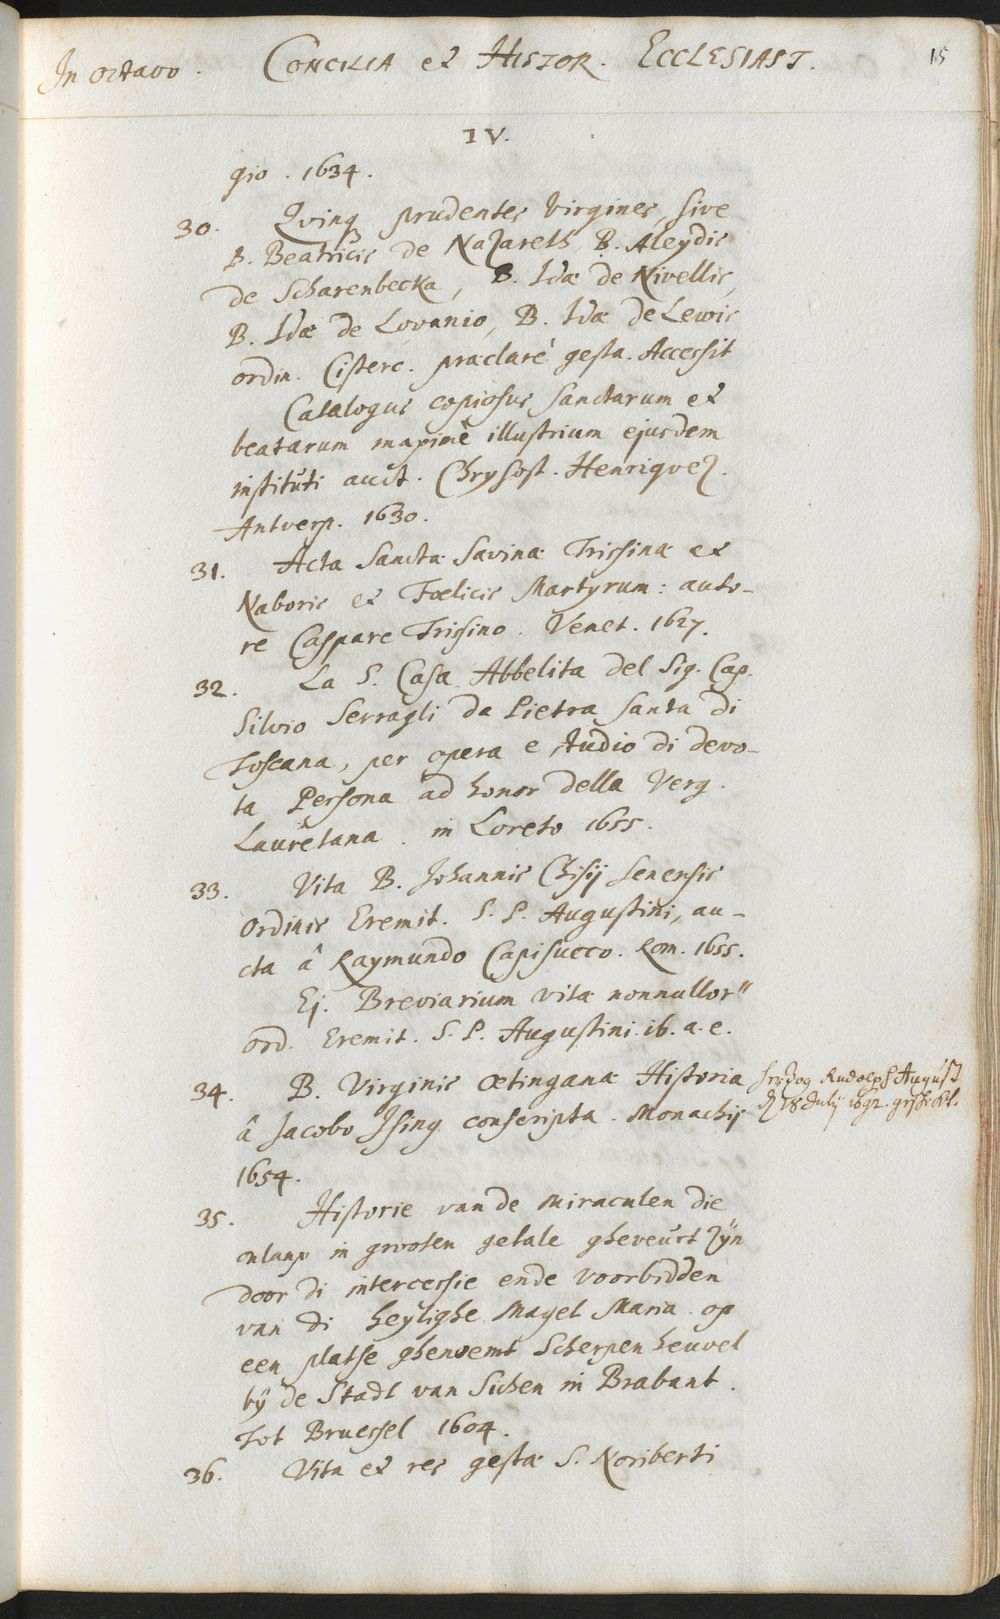 In octavo. CONCILIA et HISTOR. ECCLESIAST. 15
IV.
gio. 1634.
30. Qvinq prudentes Virgines, sive
B. Beatricis de Nazareth, B. Aleydis
de Scharenbecka, B. Idæ de Nivellis,
B. Idæ de Lovanio, B. Idæ de Lewis
ordin. Cisterc. præclarè gesta. Accessit
Catalogus copiosus sanctarum et
beatarum maximè illustrium ejusdem
instituti auct. Chrysost. Henriquez.
Antverp. 1630.
31. Acta Sanctæ Savinæ Trissinæ et
Naboris et Fœlicis Martyrum: auto-
re Caspare Trissino. Venet. 1627.
32. La S. Casa Abbelita del Sig. Cap.
Silvio Serragli da Pietra santa di
Toscana, per opera e studio di devo-
ta Persona ad honor della Verg.
Lauretana. in Loreto 1655.
33. Vita B. Johannis Chisij Senensis
Ordinis Eremit. S. P. Augustini, au-
cta â Raymundo Capisucco. Rom. 1655.
Ej. Breviarium vitæ nonnullor"
ord. Eremit. S. P. Augustini. ib. a. e.
34. B. Virginis œtinganæ Historia
â Jacobo Ising conscripta. Monachij
1654.
Hertzog Rudolph August
28 July 1692.
35. Historie van de miraculen die
onlanx in grooten getale ghebeurt zÿn
door di intercessie ende voorbidden
van di heylighe Maget Maria. op
een platse ghenoemt Scherpen heuvel
bÿ de Stadt van Sichen in Brabant.
Tot Bruessel 1604.
36. Vita et res gestæ S. Noriberti